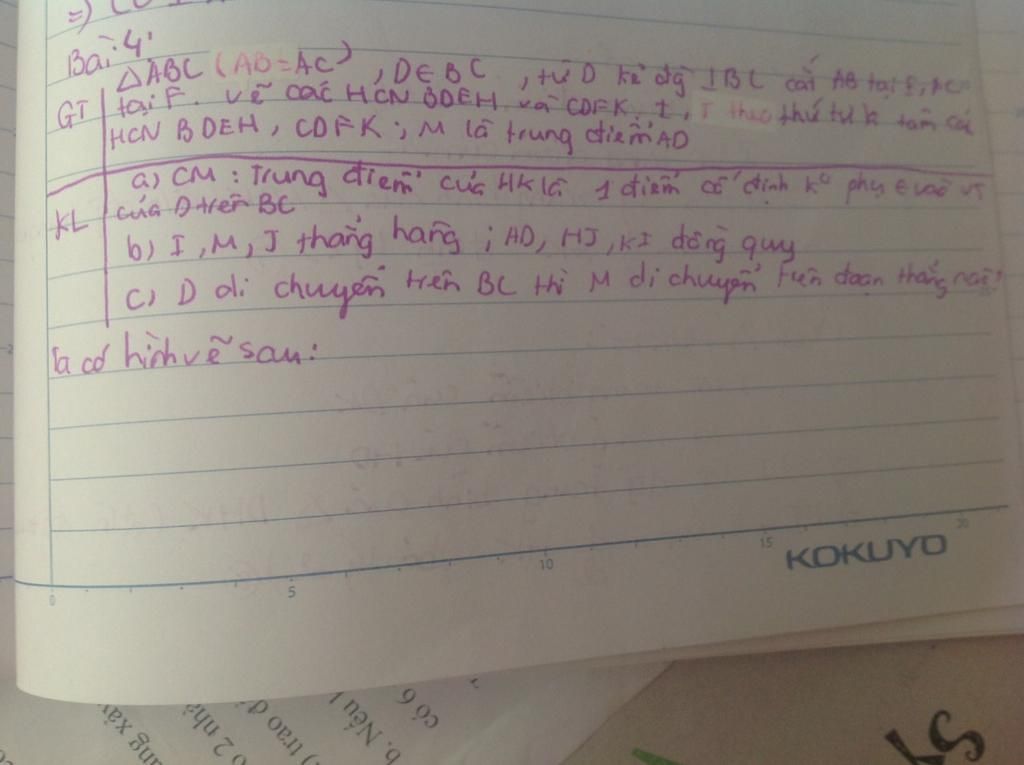 =)
Bài 4:
△ABC (AB=AC), D∈BC, từ D kẻ đg ⊥BC cắt AB tại E, AC
GT tại F. Vẽ các HCN BDEH và CDFK. I, J theo thứ tự là tâm các
HCN BDEH, CDFK; M là trung điểm AD
a) CM: Trung điểm của HK là 1 điểm cố định kº phụ ∈ vào vt
KL của D trên BC
b) I, M, J thẳng hàng; AD, HJ, KI đồng quy
c) D di chuyển trên BC thì M di chuyển trên đoạn thẳng nào?
Ta có hình vẽ sau:
0 5 10 15 20
KOKUYO
có 6
b. Nếu
) trao đ
ó 2 nh
ang xảy